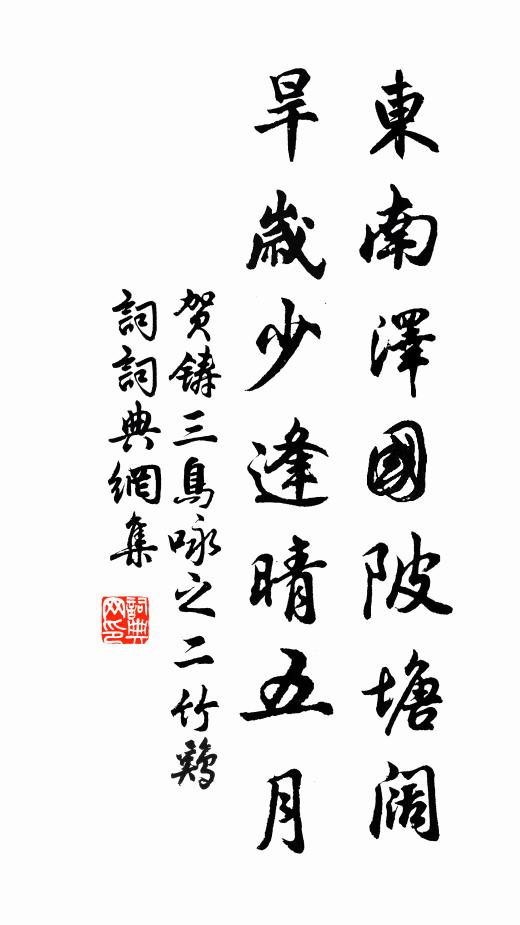 東南澤國陂塘闊
旱歲少逢晴五月
贺鑄三鳥咏之二竹鷄
詞詞典網集
詞典網印